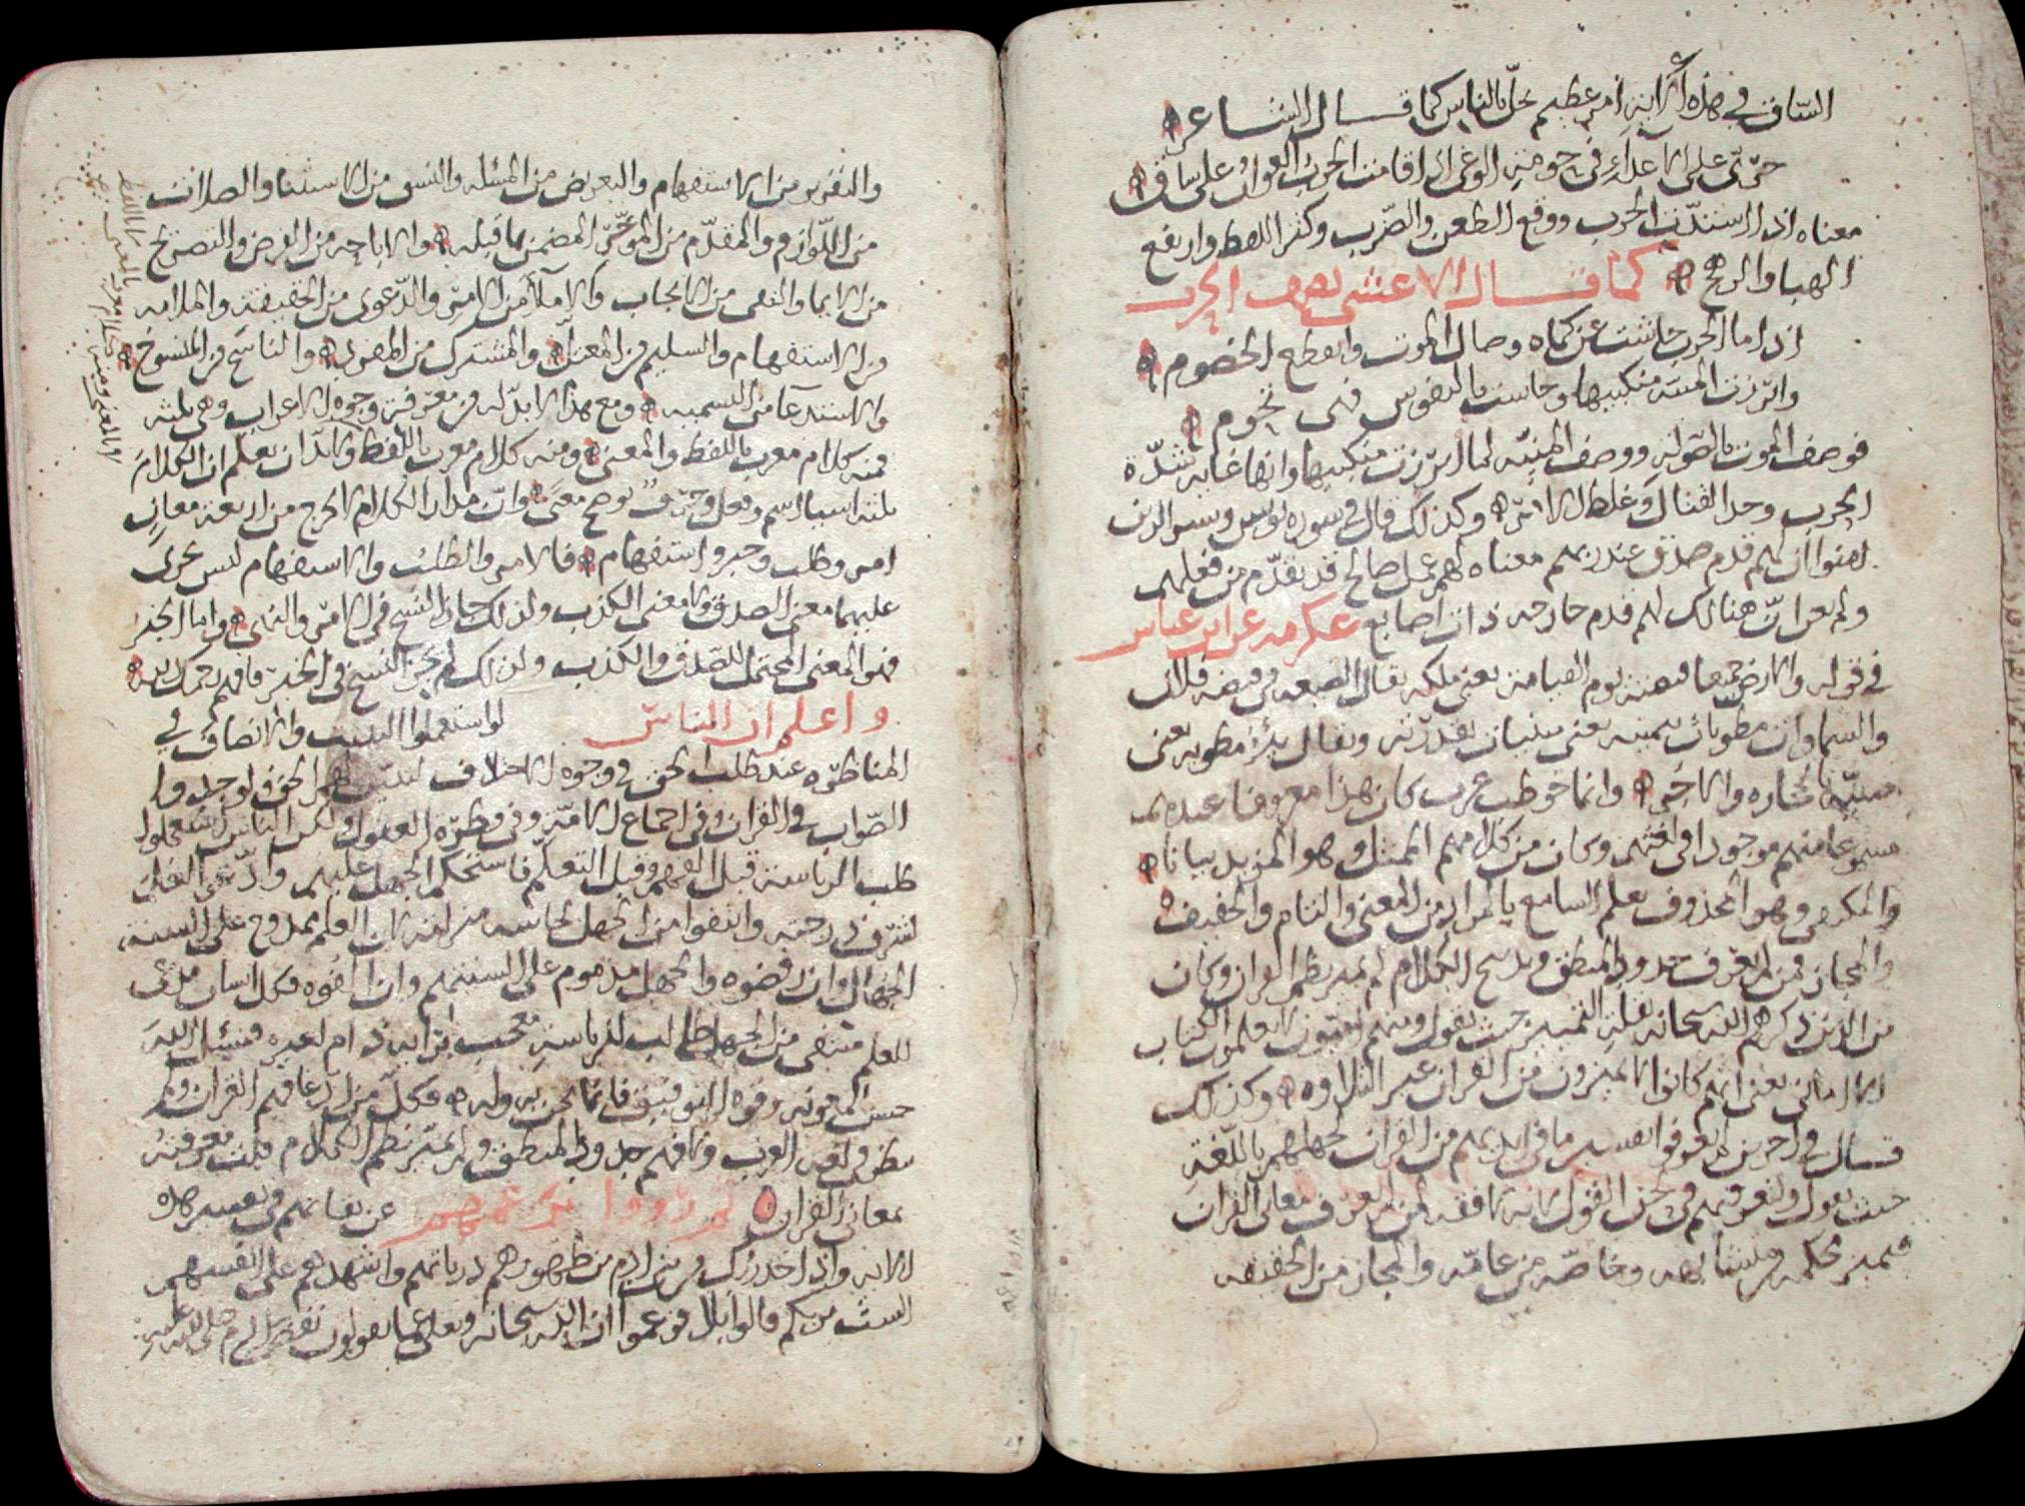 الساق في هذه الآية امر عظيم حل بالناس كما قال الشاعر
على الاعداء في حومة الوغى اذا قامت الحرب العوان على ساق
معناه اذا اشتدت الحرب ووقع الطعن والضرب وكثر اللغط وارتفع
الهبا والرهج كما قال الاعشى يصف الحرب
اذا ما الحرب عن وصال الموت وانقطع الخصوم
المنية منكبيها بالنفوس فهي تحوم
فوصف الموت بالصولة ووصف المنية لما ابرزت منكبيها وانها غاية شدة
الحرب وحد القتال وغلظ الامر وكذلك قال في سورة يونس وبشر الذين
امنوا ان لهم قدم صدق عند ربهم معناه لهم عمل صالح قد تقدم من فعلهم
ولم يعن ان هنالك لهم قدم جارحة ذات اصابع عكرمة عن ابن عباس
في قوله والارض جميعا قبضته يوم القيامة يعني ملكه يقال الضيعة في قبضة فلان
والسماوات مطويات بيمينه يعني بقدرته ويقال بئر مطوية يعني
مبنية بالحجارة والاجر وانما خوطب عرب كان هذا معروفا عندهم
مسموعا منهم موجودا في لغتهم وكان من كلامهم الممثل وهو المزيد بيانا
والمكنى وهو المحذوف بعلم السامع بالمراد من المعنى والتام والخفيف
والمجاز فمن لم يعرف حدود المنطق الكلام لم يميز نظم القران وكان
من الذين ذكرهم الله سبحانه بقلة التمييز حيث يقول ومنهم اميون لا يعلمون الكتاب
الا اماني يعني انهم كانوا لا يميزون من القران غير التلاوة وكذلك
قال في اخرين لم يعرفوا تفسير ما في ايديهم من القران لجهلهم باللغة
حيث يقول ولتعرفنهم في لحن القول لانه لا فقه لمن لم يعرف معاني القران
فيميز محكمه ومتشابهه وخاصه من عامه والمجاز من الحقيقة
والتقرير من الاستفهام والتعريض من المسئلة من الاستثنا والصلات
من اللوازم والمقدم من المؤخر المضمن بما قبله والاباحة من الفرض والتصريح
من الايما والنفي من الايجاب من الامر والدعوى من الحقيقة والملامة
من الاستفهام والسليم من المعتل والمشترك من المفرد والناسخ من المنسوخ
من التسمية ومع هذا لا بد له من معرفة وجوه الاعراب وهي ثلثة
فمنه كلام معرب باللفظ والمعنى ومنه كلام معرب باللفظ ولا بد ان تعلم ان الكلام
ثلثة اشيا اسم وفعل وحرف يوضح معنى وان مدار الكلام الخرج من اربعة معان
امر وطلب وخبر واستفهام فالامر والطلب والاستفهام ليس يجرى
عليهما معنى الصدق ولا معنى الكذب ولذلك جاز النسخ في الامر والنهي واما الخبر
فهو المعنى المحتمل للصدق والكذب ولذلك لم يجز النسخ في الخبر فافهم رحمك الله
واعلم ان الناس لو استعملوا التثبت والانصاف في
المناظرة عند طلب الحق في وجوه الاختلاف لتبين لهم الحق ولوجدوا
الصواب في القران وفي اجماع الامة وفي فطرة العقول ولكن الناس استعملوا
طلب الرياسة قبل الفهم وقبل التعلم فاستحكم الجهل عليهم وادعوا العلم
لشرف درجته وانتفوا من الجهل لخساسة منزلته لان العلم ممدوح على السنة
الجهال وان رفضوه والجهل مذموم على السنتهم وان الفوه فكل انسان مدعي
للعلم منتفي من الجهل طالب للرياسة معجب برايه ذام لغيره فنسئل الله
حسن المعونة وقوة التوفيق فانما نحن به وله فكل من ادعا فهم القران ولم
ينظر في لغة العرب ولا فهم حدود المنطق ولم يميز نظم الكلام قلت معرفته
بمعاني القران عن في تفسير هذه
الاية واذ اخذ ربك من بني ادم من ظهورهم ذرياتهم واشهدهم على انفسهم
الست بربكم قالوا بلا فزعموا ان الله سبحانه وتعالى عما يقولون